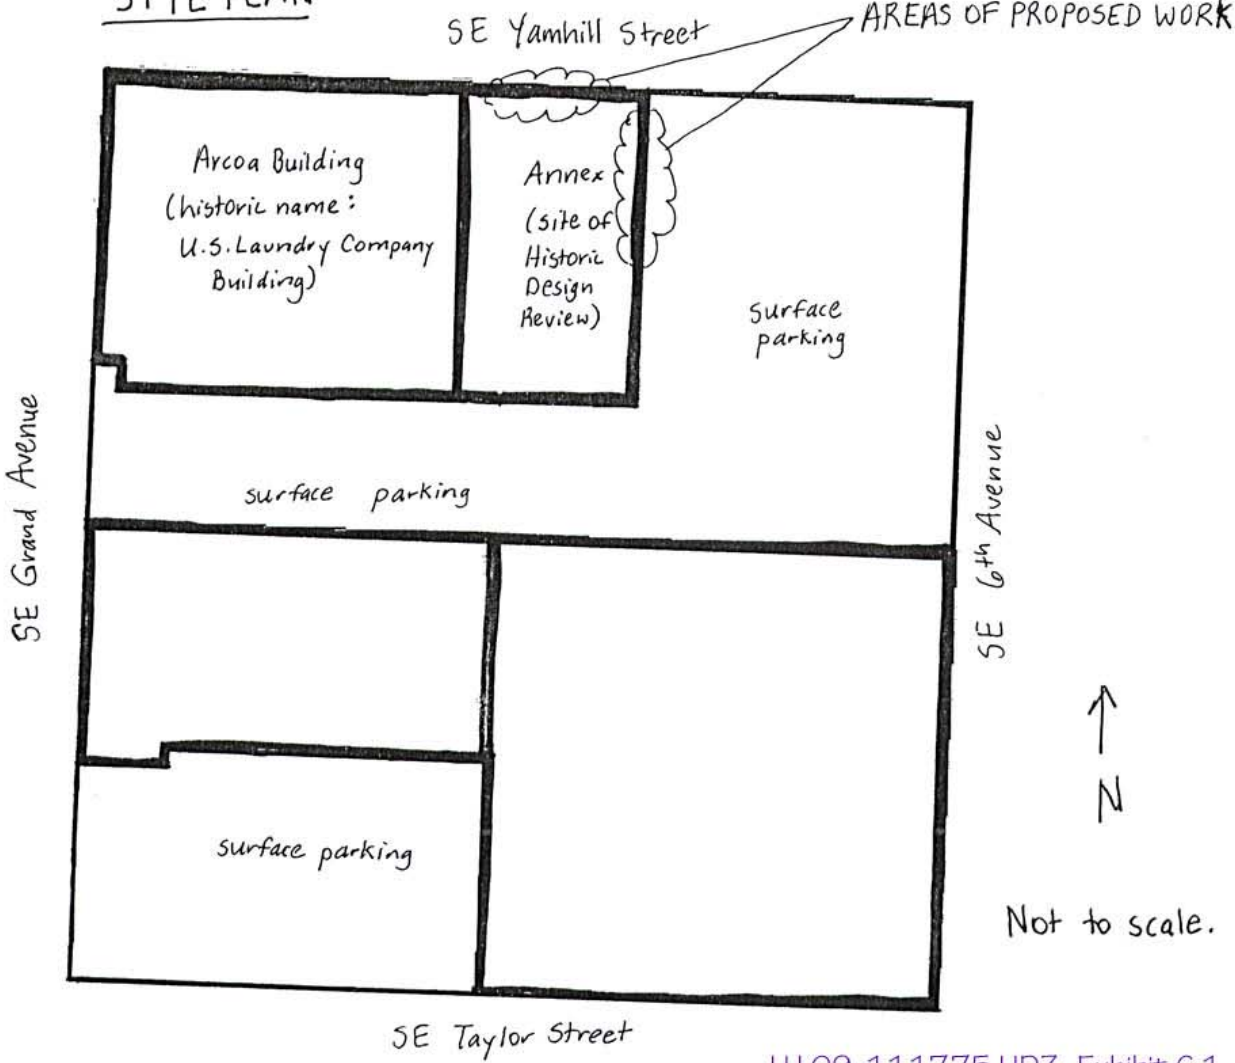 SITE PLAN
SE Yamhill Street
AREAS OF PROPOSED WORK
Arcoa Building
(historic name:
U.S. Laundry Company
Building)
Annex
(site of
Historic
Design
Review)
surface
parking
SE Grand Avenue
surface parking
SE 6th Avenue
N
surface parking
Not to scale.
SE Taylor Street